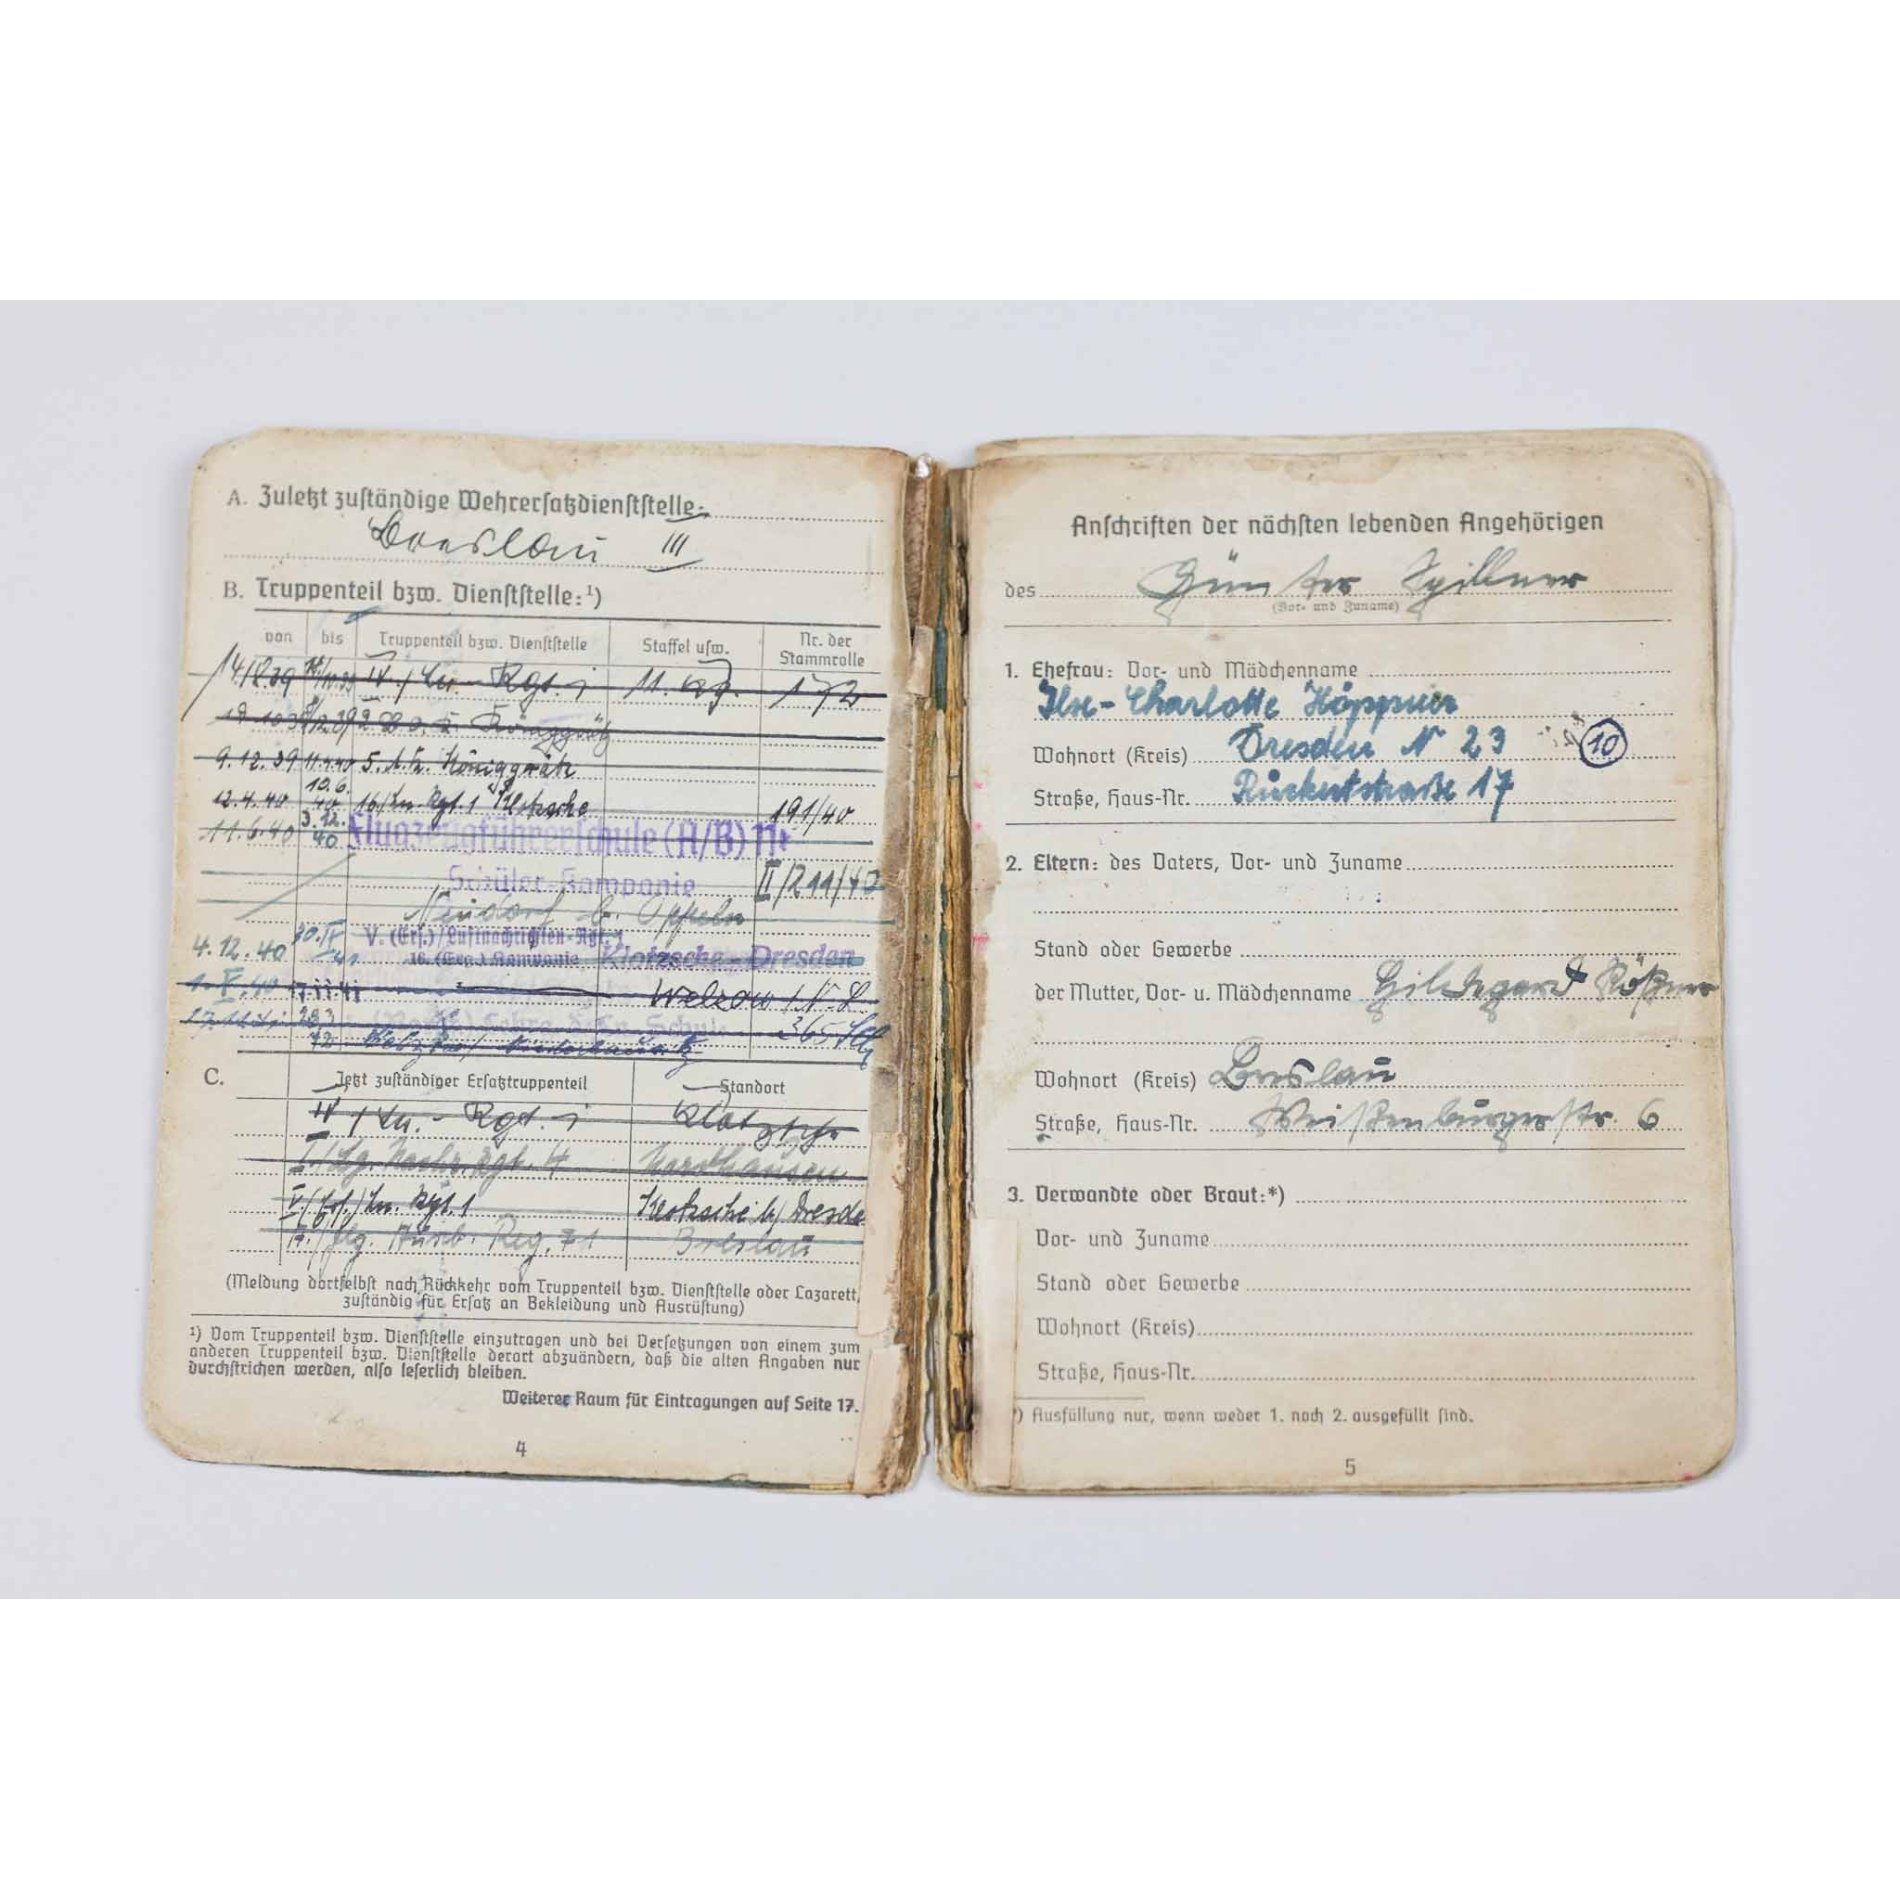 A. Zuletzt zuständige Wehrersatzdienststelle:
Breslau III
B. Truppenteil bzw. Dienststelle:¹)
von bis Truppenteil bzw. Dienststelle Staffel usw. Nr. der Stammrolle
IV / Ln. - Rgt. 1 11. 172
Königgrätz
9.12.39 5. Königgrätz
10.6.
12.4.40 40 16/Ln. Rgt. 1 Klotzsche 191/40
11.6.40 3.12.40 Flugzeugführerschule (A/B) Nr
Schüler-Kompanie II/211/40
Neudorf b. Oppeln
4.12.40 30.IV V. (Ers.)/Luftnachrichten-Rgt. 1
41 16. Kompanie Klotzsche-Dresden
Welzow / N.-L.
C. Jetzt zuständiger Ersatztruppenteil Standort
IV / Ln. - Rgt. 1 Klotzsche
I./Lg. Nachr. Rgt. 4 Nordhausen
V/(Ers.) Ln. Rgt. 1 Klotzsche b/ Dresde
Flg. Ausb. Reg. 71 Breslau
(Meldung dortselbst nach Rückkehr vom Truppenteil bzw. Dienststelle oder Lazarett,
zuständig für Ersatz an Bekleidung und Ausrüstung)
¹) Vom Truppenteil bzw. Dienststelle einzutragen und bei Versetzungen von einem zum
anderen Truppenteil bzw. Dienststelle derart abzuändern, daß die alten Angaben nur
durchstrichen werden, also leserlich bleiben.
Weiterer Raum für Eintragungen auf Seite 17.
4
Anschriften der nächsten lebenden Angehörigen
des Günter Spillner
(Vor- und Zuname)
1. Ehefrau: Vor- und Mädchenname
Ilse-Charlotte Höppner
Wohnort (Kreis) Dresden N 23 10
Straße, Haus-Nr. Rückertstraße 17
2. Eltern: des Vaters, Vor- und Zuname
Stand oder Gewerbe
der Mutter, Vor- u. Mädchenname Hildegard Rößner
Wohnort (Kreis) Breslau
Straße, Haus-Nr. Weißenburgerstr. 6
3. Verwandte oder Braut:*)
Vor- und Zuname
Stand oder Gewerbe
Wohnort (Kreis)
Straße, Haus-Nr.
*) Ausfüllung nur, wenn weder 1. noch 2. ausgefüllt sind.
5